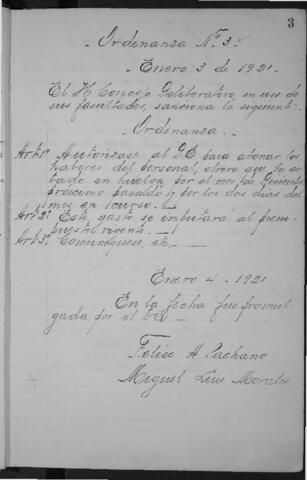 3
Ordenanza Nº 3º
Enero 3 de 1921-
El H Concejo Deliberativo, en uso de
sus facultades, sanciona la siguiente:-
Ordenanza.
Art 1º Autorizase al DE para abonar los
haberes del personal, obrero que ha es-
tado en huelga por el mes, de Diciembre
próximo pasado y por los dos dias del
mes en curso.
Art: 2º Este gasto se imputara al presu-
puesto vigente.
Art: 3º Comuníquese, etc.
Enero 4 - 1921
En la fecha fue promul
gada por el
Felise A Pachano
Miguel Luis Morales